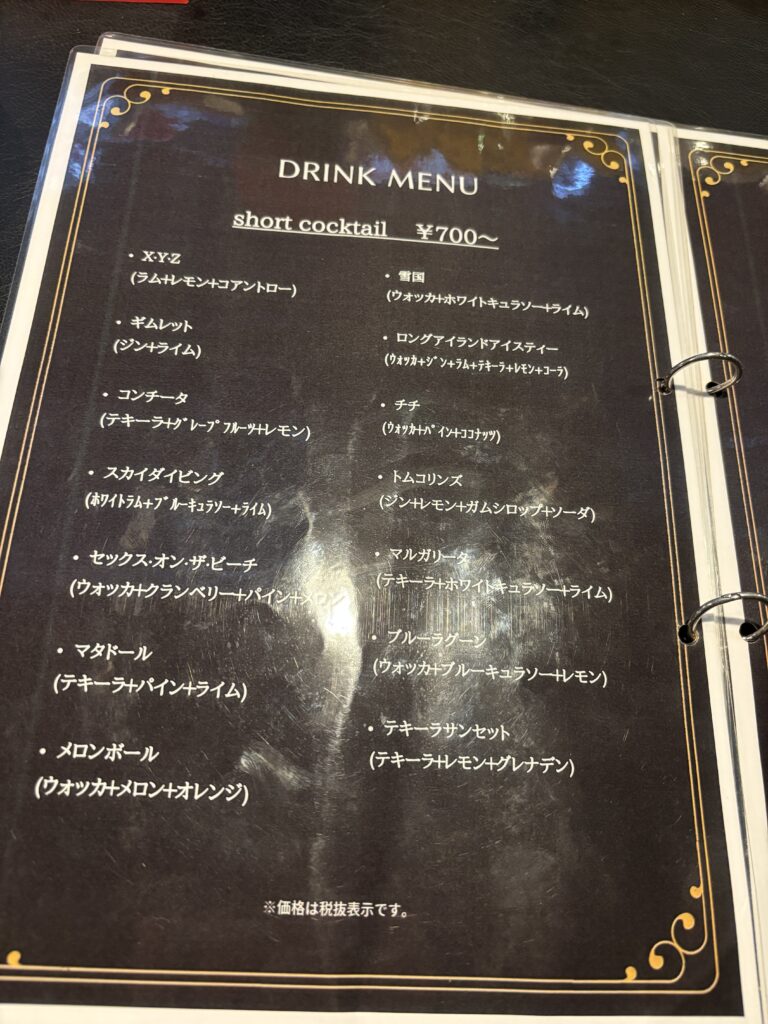 DRINK MENU
short cocktail ¥700～
・X・Y・Z
(ラム+レモン+コアントロー)
・ギムレット
(ジン+ライム)
・コンチータ
(テキーラ+ｸﾞﾚｰﾌﾟﾌﾙｰﾂ+レモン)
・スカイダイビング
(ﾎﾜｲﾄﾗﾑ+ﾌﾞﾙｰｷｭﾗｿｰ+ﾗｲﾑ)
・セックス・オン・ザ・ビーチ
(ウォッカ+クランベリー+パイン+メロン
・マタドール
(テキーラ+パイン+ライム)
・メロンボール
(ウォッカ+メロン+オレンジ)
・雪国
(ウォッカ+ホワイトキュラソー+ライム)
・ロングアイランドアイスティー
(ｳｫｯｶ+ｼﾞﾝ+ﾗﾑ+ﾃｷｰﾗ+ﾚﾓﾝ+ｺｰﾗ)
・チチ
(ｳｫｯｶ+ﾊﾟｲﾝ+ｺｺﾅｯﾂ)
・トムコリンズ
(ジン+レモン+ガムシロップ+ソーダ)
・マルガリータ
(テキーラ+ホワイトキュラソー+ライム)
・ブルーラグーン
(ウォッカ+ブルーキュラソー+レモン)
・テキーラサンセット
(テキーラ+レモン+グレナデン)
※価格は税抜表示です。